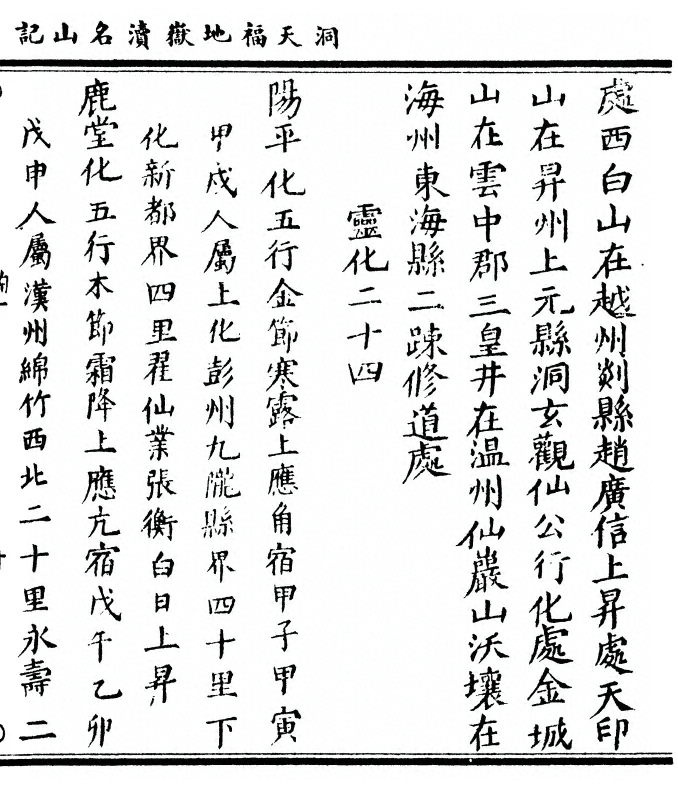 洞天福地嶽瀆名山記
處西白山在越州剡縣趙廣信上昇處天印
山在昇州上元縣洞玄觀仙公行化處金城
山在雲中郡三皇井在温州仙巖山沃壤在
海州東海縣二踈修道處
靈化二十四
陽平化五行金節寒露上應角宿甲子甲寅
甲戌人屬上化彭州九隴縣界四十里下
化新都界四里翟仙業張衡白日上昇
鹿堂化五行木節霜降上應亢宿戊午乙卯
戊申人屬漢州綿竹西北二十里永壽二